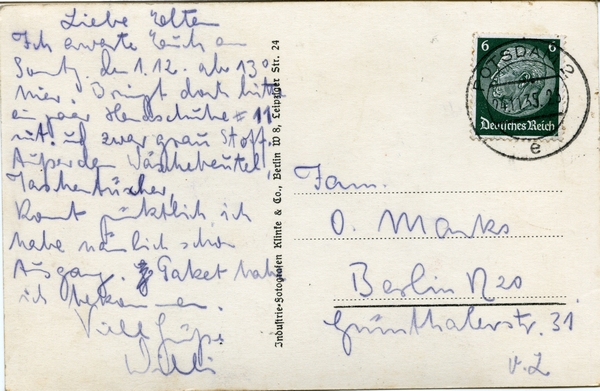 Liebe Eltern
Ich erwarte Euch am
Sonntg. den 1.12. ab 13°
hier. Bringt doch bitte
ein paar Handschuhe # 11
mit. und zwar grau Stoff.
Außerdem Wäschebeutel,
Taschentücher,
Komt pünktlich, ich
habe nämlich schon
Ausgang. Paket habe
ich bekommen.
Viele Grüße
Willi
Industrie-Fotografen Klinke & Co., Berlin W 8, Leipziger Str. 24
6 6
Deutsches Reich
POTSDAM 2
e
Fam.
O. Manks
Berlin N20
Grünthalerstr. 31
v. L